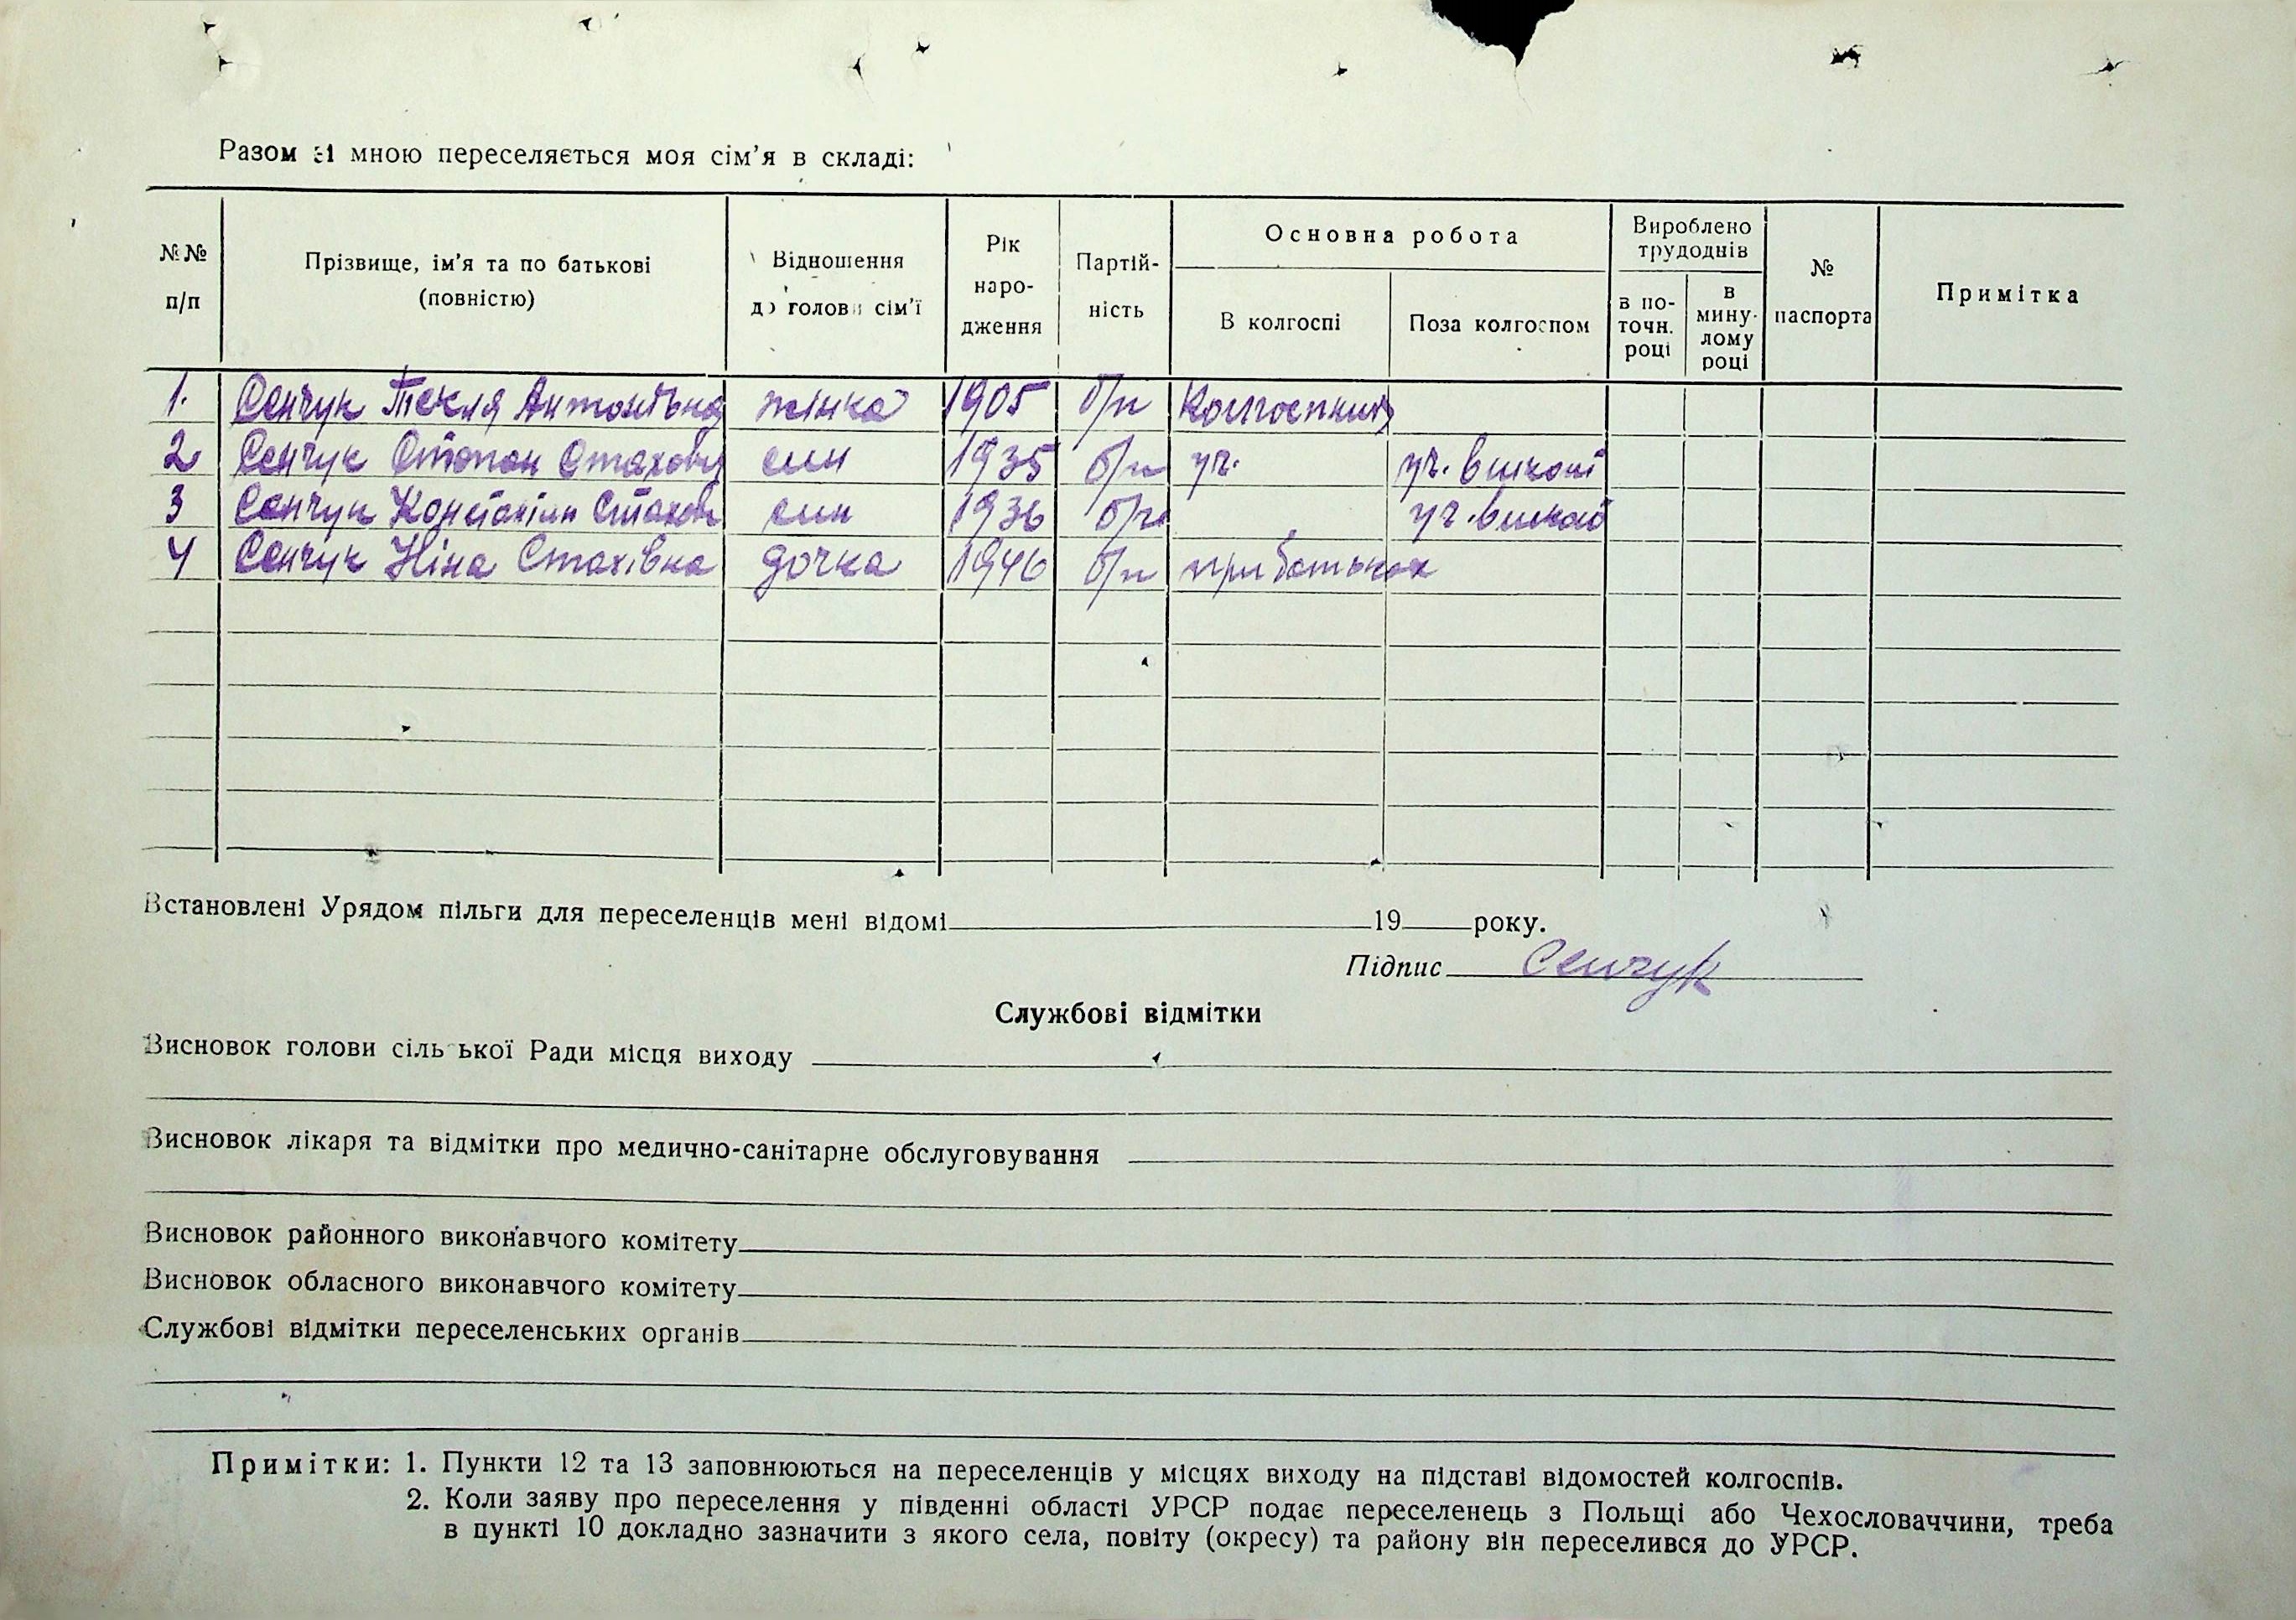 Разом зі мною переселяється моя сім'я в складі:
№№ п/п
Прізвище, ім'я та по батькові (повністю)
Відношення до голови сім'ї
Рік народження
Партійність
Основна робота
В колгоспі
Поза колгоспом
Вироблено трудоднів
в поточн. році
в минулому році
№ паспорта
Примітка
1. Сенчук Текля Антонівна жінка 1905 б/п Колгоспниц
2 Сенчук Степан Стахович син 1935 б/п уч. уч. в школі
3 Сенчук Констянтин Стахов син 1936 б/п уч. в школі
4 Сенчук Ніна Стахівна дочка 1946 б/п при батьках
Встановлені Урядом пільги для переселенців мені відомі 19 року.
Підпис Сенчук
Службові відмітки
Висновок голови сільської Ради місця виходу
Висновок лікаря та відмітки про медично-санітарне обслуговування
Висновок районного виконавчого комітету
Висновок обласного виконавчого комітету
Службові відмітки переселенських органів
Примітки: 1. Пункти 12 та 13 заповнюються на переселенців у місцях виходу на підставі відомостей колгоспів.
2. Коли заяву про переселення у південні області УРСР подає переселенець з Польщі або Чехословаччини, треба
в пункті 10 докладно зазначити з якого села, повіту (окресу) та району він переселився до УРСР.